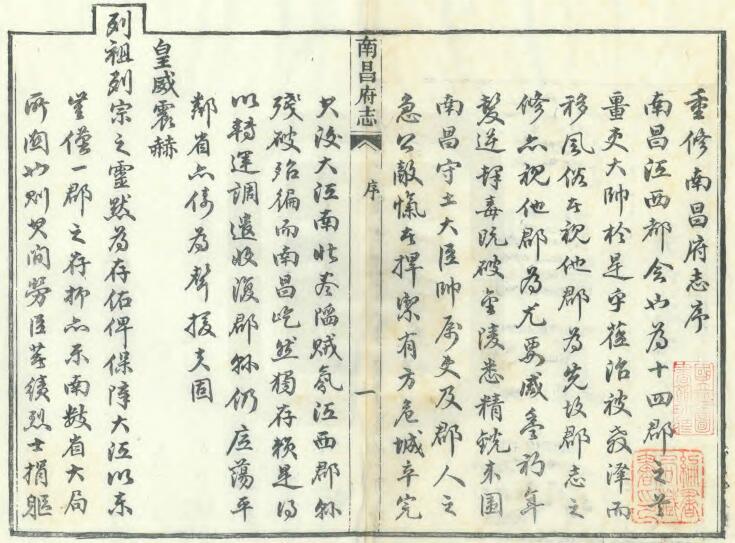 重修南昌府志序
南昌江西都会也為十四郡之首
畺吏大帥於是乎蒞治被教澤而
移風俗者視他郡為先故郡志之
修亦視他郡為尤要咸豐初年
髮逆肆毒既破金陵悉精銳来圍
南昌守土大臣帥屬吏及郡人之
急公敵愾者捍禦有方危城卒完
南昌府志
序
一
其後大江南北陷賊氛江西郡縣
殘破殆徧而南昌屹然獨存賴是得
以轉運調遣收復郡縣仍底蕩平
鄰省亦倚為聲援夫固
皇威震赫
列祖列宗之靈默為存佑俾保障大江以東
豈僅一郡之存抑亦東南數省大局
所關也則其間勞臣藎績烈士捐軀